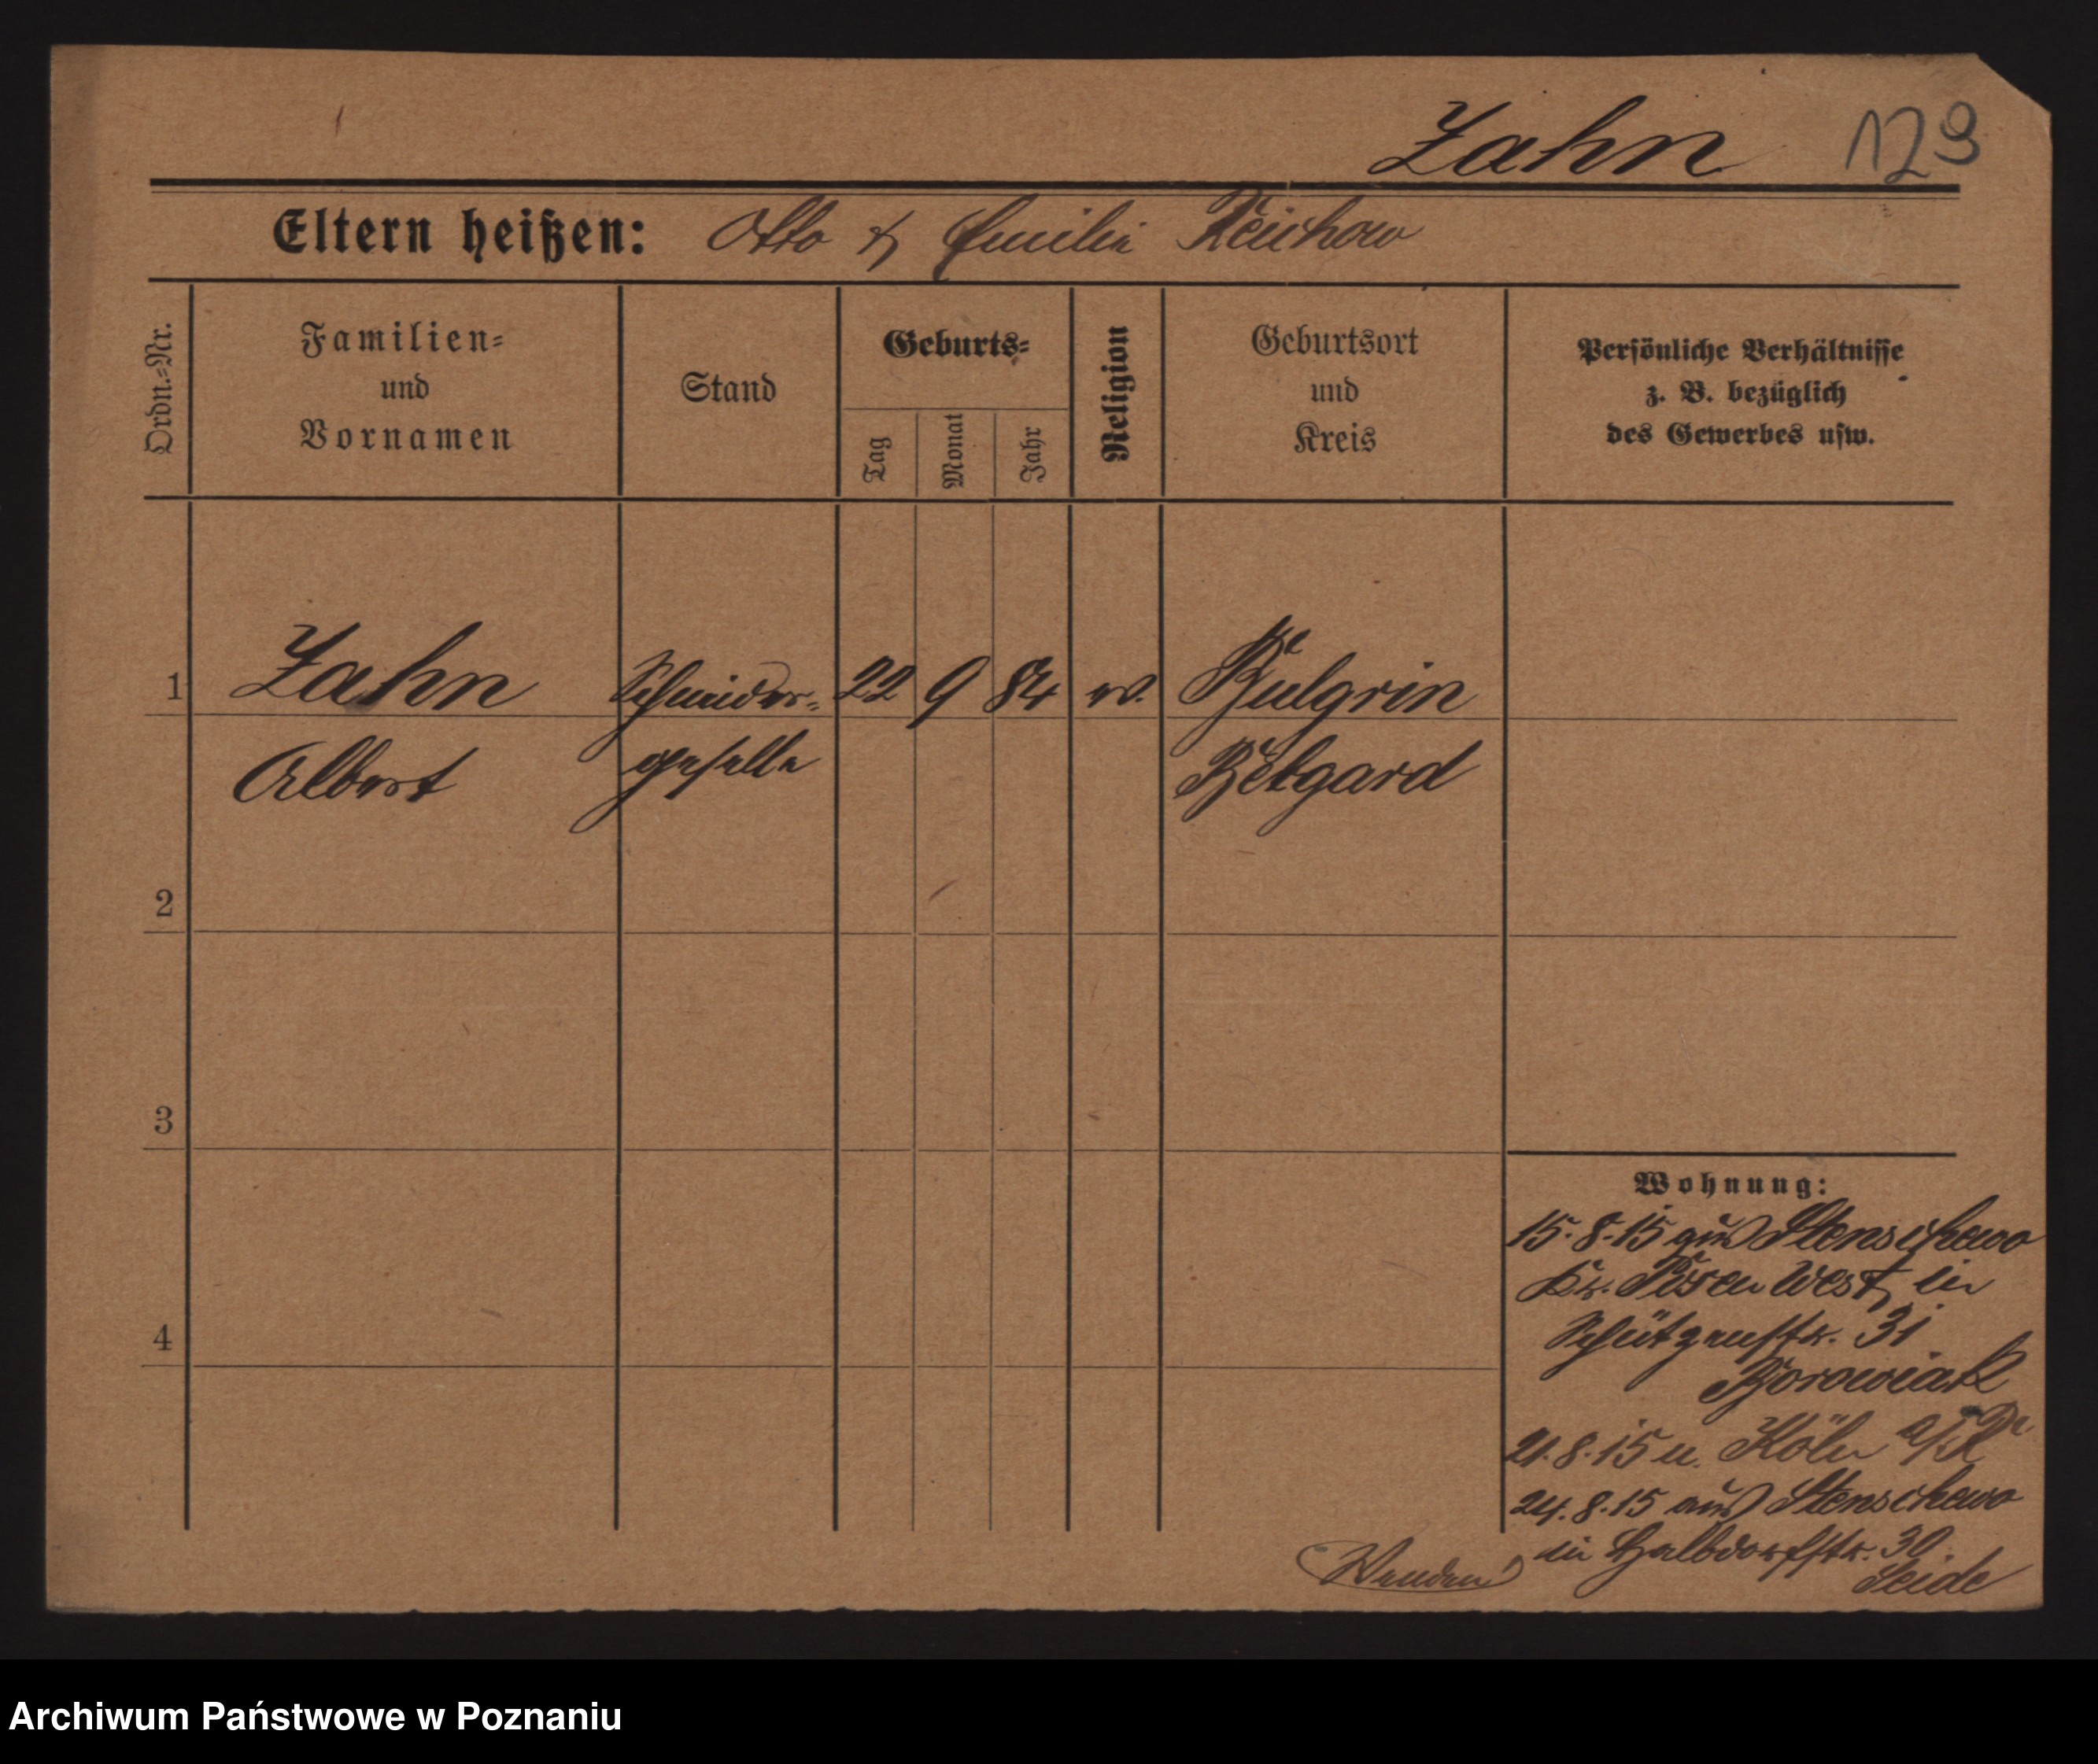 Zahn 123
Eltern heißen: Otto & Emilie Reichow
Ordn.=Nr.
Familien=
und
Vornamen
Stand
Geburts=
Tag
Monat
Jahr
Religion
Geburtsort
und
Kreis
Persönliche Verhältnisse
z. B. bezüglich
des Gewerbes usw.
1 Zahn Schneider= 22 9 84 ev. Bulgrin
Albert geselle Belgard
2
3
4
Wohnung:
15.8.15 aus Stenschewo
Kr. Posen West, in
Schützenstr. 31
Borowiak
21.8.15 n. Köln a/R
24.8.15 aus Stenschewo
in Halbdorfstr. 30
Seide
Wenden!
Archiwum Państwowe w Poznaniu